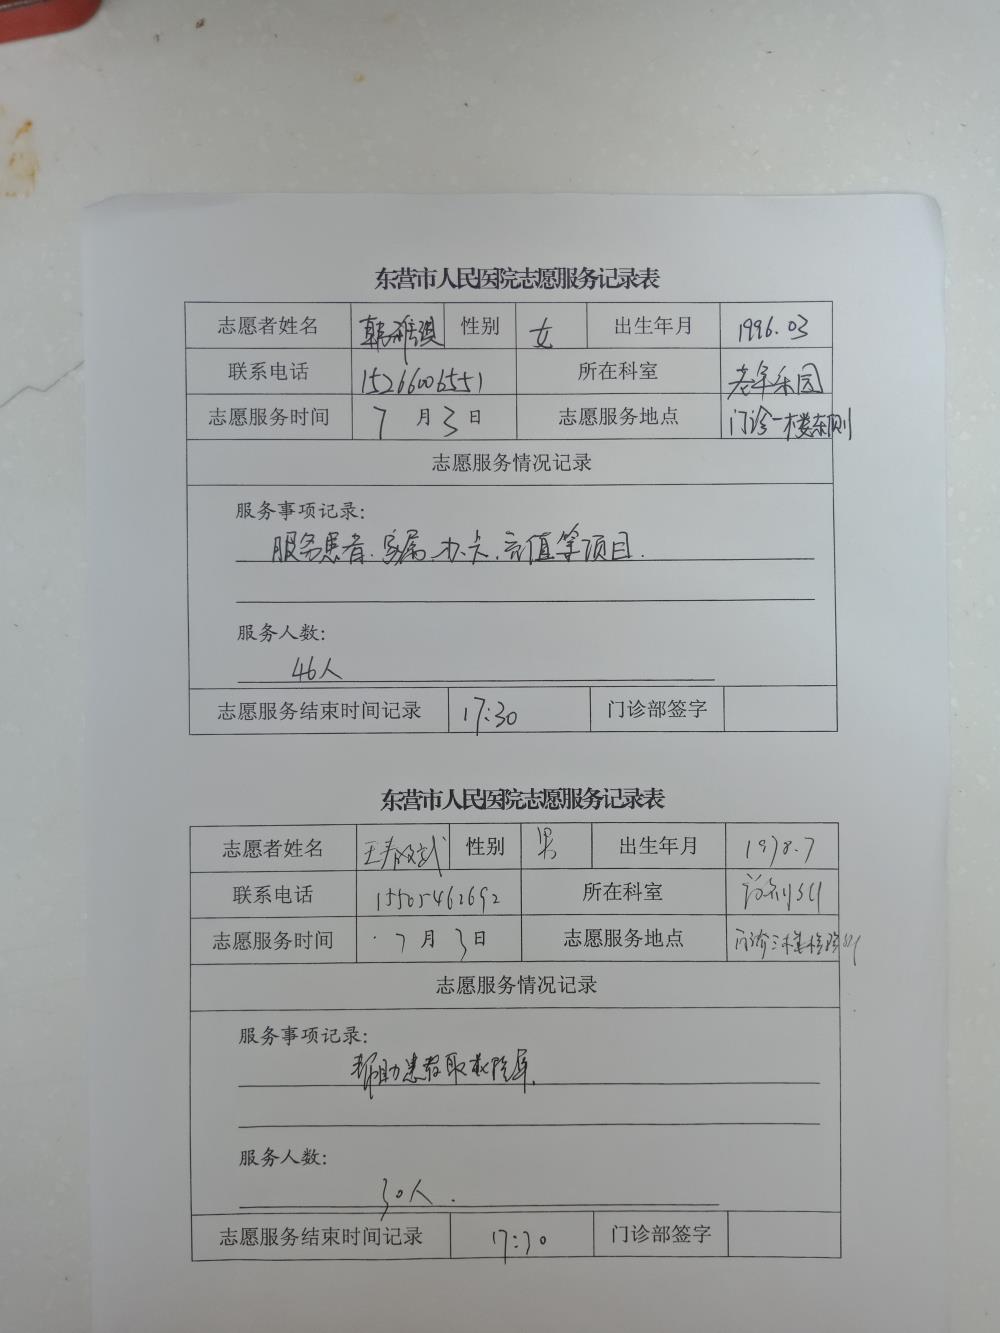 东营市人民医院志愿服务记录表
志愿者姓名 韩雅琪 性别 女 出生年月 1996.03
联系电话 15266006551 所在科室 老年乐园
志愿服务时间 7月3日 志愿服务地点 门诊一楼东侧
志愿服务情况记录
服务事项记录:
服务患者、家属、办卡、充值等项目.
服务人数:
46人
志愿服务结束时间记录 17:30 门诊部签字
东营市人民医院志愿服务记录表
志愿者姓名 王 性别 男 出生年月 1978.7
联系电话 15505462692 所在科室
志愿服务时间 7月3日 志愿服务地点 门诊三楼
志愿服务情况记录
服务事项记录:
帮助患者取
服务人数:
30人.
志愿服务结束时间记录 17:30 门诊部签字